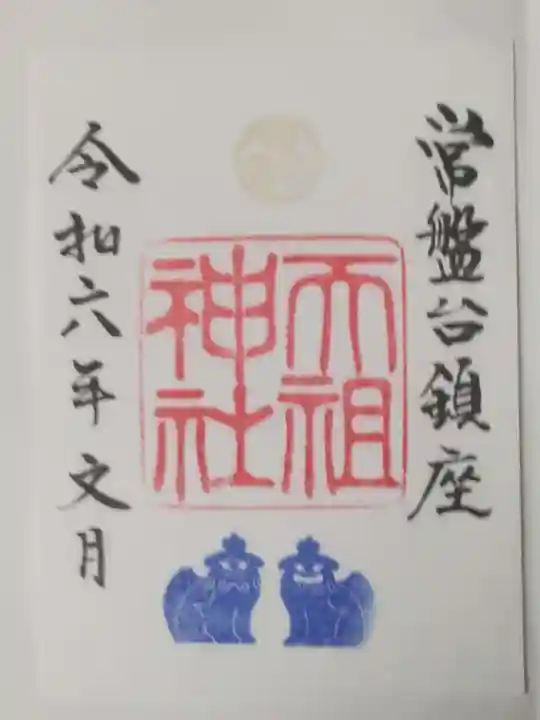 常盤台鎮座
天祖
神社
令和六年文月